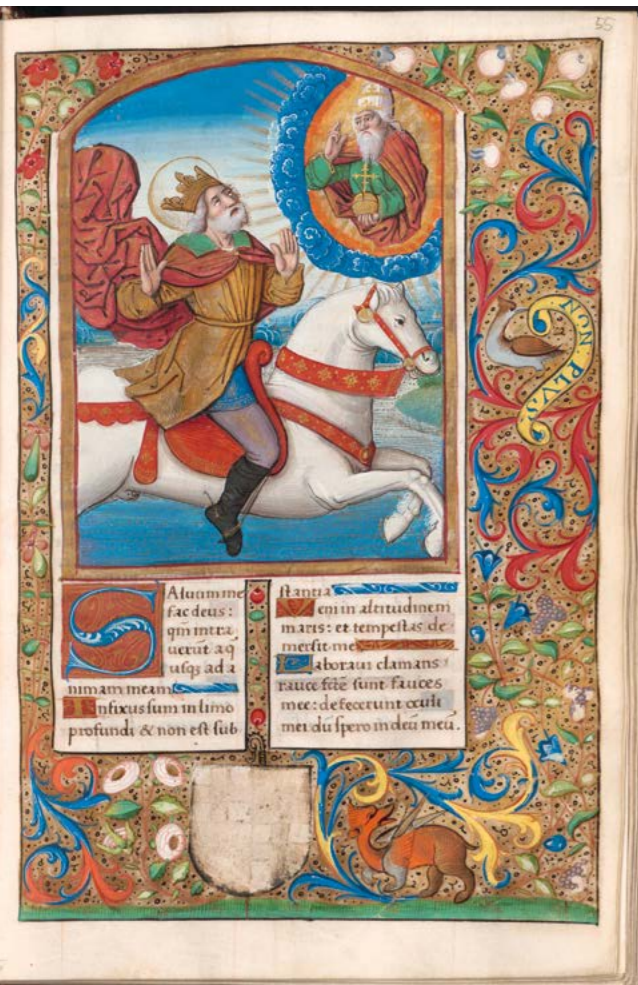 55
NON PLVS
Aluum me
fac deus:
qm̄ intra
uerūt aq
usqȝ ad a
nimam meam
Infixus sum in limo
profundi & non est sub
stantia
Veni in altitudinem
maris: et tempestas de
mersit me
Laboraui clamans
rauce fctē sunt fauces
mee: defecerunt oculi
mei dū spero in deū meū.